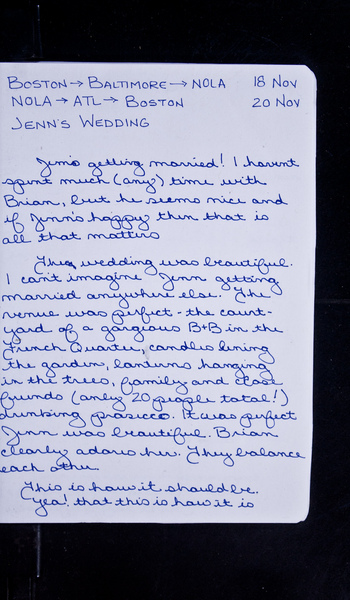 BOSTON → BALTIMORE → NOLA 18 NOV
NOLA → ATL → BOSTON 20 NOV
JENN'S WEDDING
Jenn's getting married! I havent
spent much (any) time with
Brian, but he seems nice and
if Jenn's happy then that is
all that matters
The wedding was beautiful.
I can't imagine Jenn getting
married anywhere else. The
venue was perfect - the court-
yard of a gorgious B+B in the
French Quarter, candles lining
the garden, lanterns hanging
in the trees, family and close
friends (only 20 people total!)
drinking prosecco. It was perfect
Jenn was beautiful. Brian
clearly adores her. They balance
each other.
This is how it should be.
Yea! that this is how it is